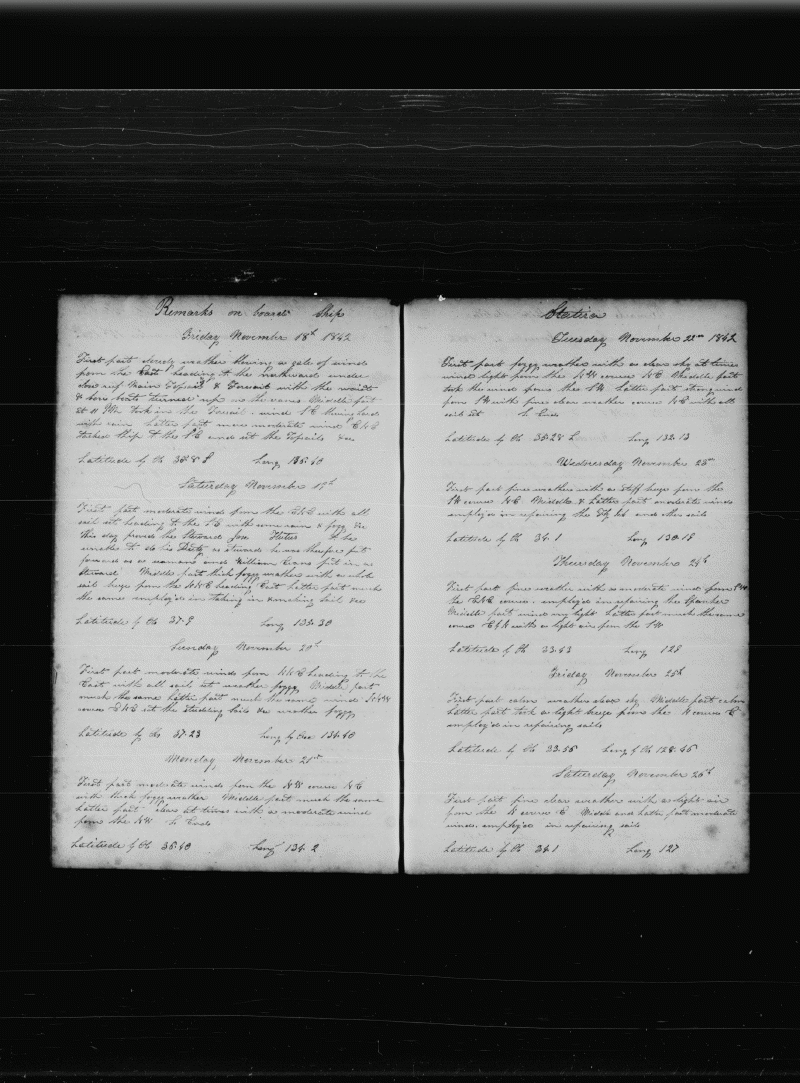 Remarks on board Ship
Friday November 18th 1842
First part cloudy weather blowing a gale of wind
from the East heading to the Southward under
close reef Main Topsail & Foresail with the waist
& bow boats turned up on the cranes Middle part
at 11 PM took in the Foresail wind SE blowing hard
with rain Latter part more moderate wind ENE
Tacked ship to the SE and set the Topsails &c
Latitude by Ob 38.8 S Long 135.40
Saturday November 19th
First part moderate winds from the ENE with all
sail set heading to the SE with some rain & fogg &c
this day proved the Steward Jose to be
unable to do his Duty as Steward he was therefore put
forward as a seaman and William Evans put in as
Steward Middle part thick foggy weather with a whole
sail breeze from the NNE heading East Latter part much
the same employed in taking in & making sail &c
Latitude by Ob 37.9 Long 135.30
Sunday November 20th
First part moderate winds from NNE heading to the
East with all sail set weather foggy Middle part
much the same Latter part much the same wind
course ENE set the studding sails &c weather foggy
Latitude by Ob 37.23 Long by 134.40
Monday November 21st
First part moderate winds from the NW course NE
with thick foggy weather Middle part much the same
Latter part clear at times with a moderate wind
from the NW So Ends
Latitude by Ob 36.40 Long 134.2
Statira
Tuesday November 22nd 1842
First part foggy weather with a clear sky at times
wind light from the NW course NE Middle part
took the wind from the SW Latter part strong wind
from SW with fine clear weather course NE with all
sail set So Ends
Latitude by Ob 35.28 S Long 132.13
Wednesday November 23rd
First part fine weather with a stiff breeze from the
SW course NE Middle & Latter part moderate winds
employed in repairing the Fly Jib and other sails
Latitude by Ob 34.1 Long 130.18
Thursday November 24th
First part fine weather with a moderate wind from
the course employed in repairing the Spanker
Middle part wind very light Latter part much the same
course with a light air from the SW
Latitude by Ob 33.43 Long 129
Friday November 25th
First part calm weather clear sky Middle part calm
Latter part took a light breeze from the N course E
employed in repairing sails
Latitude by Ob 33.56 Long by Ob 128.45
Saturday November 26th
First part fine clear weather with a light air
from the N course E Middle and Latter part moderate
winds employed in repairing sails
Latitude by Ob 34.1 Long 127